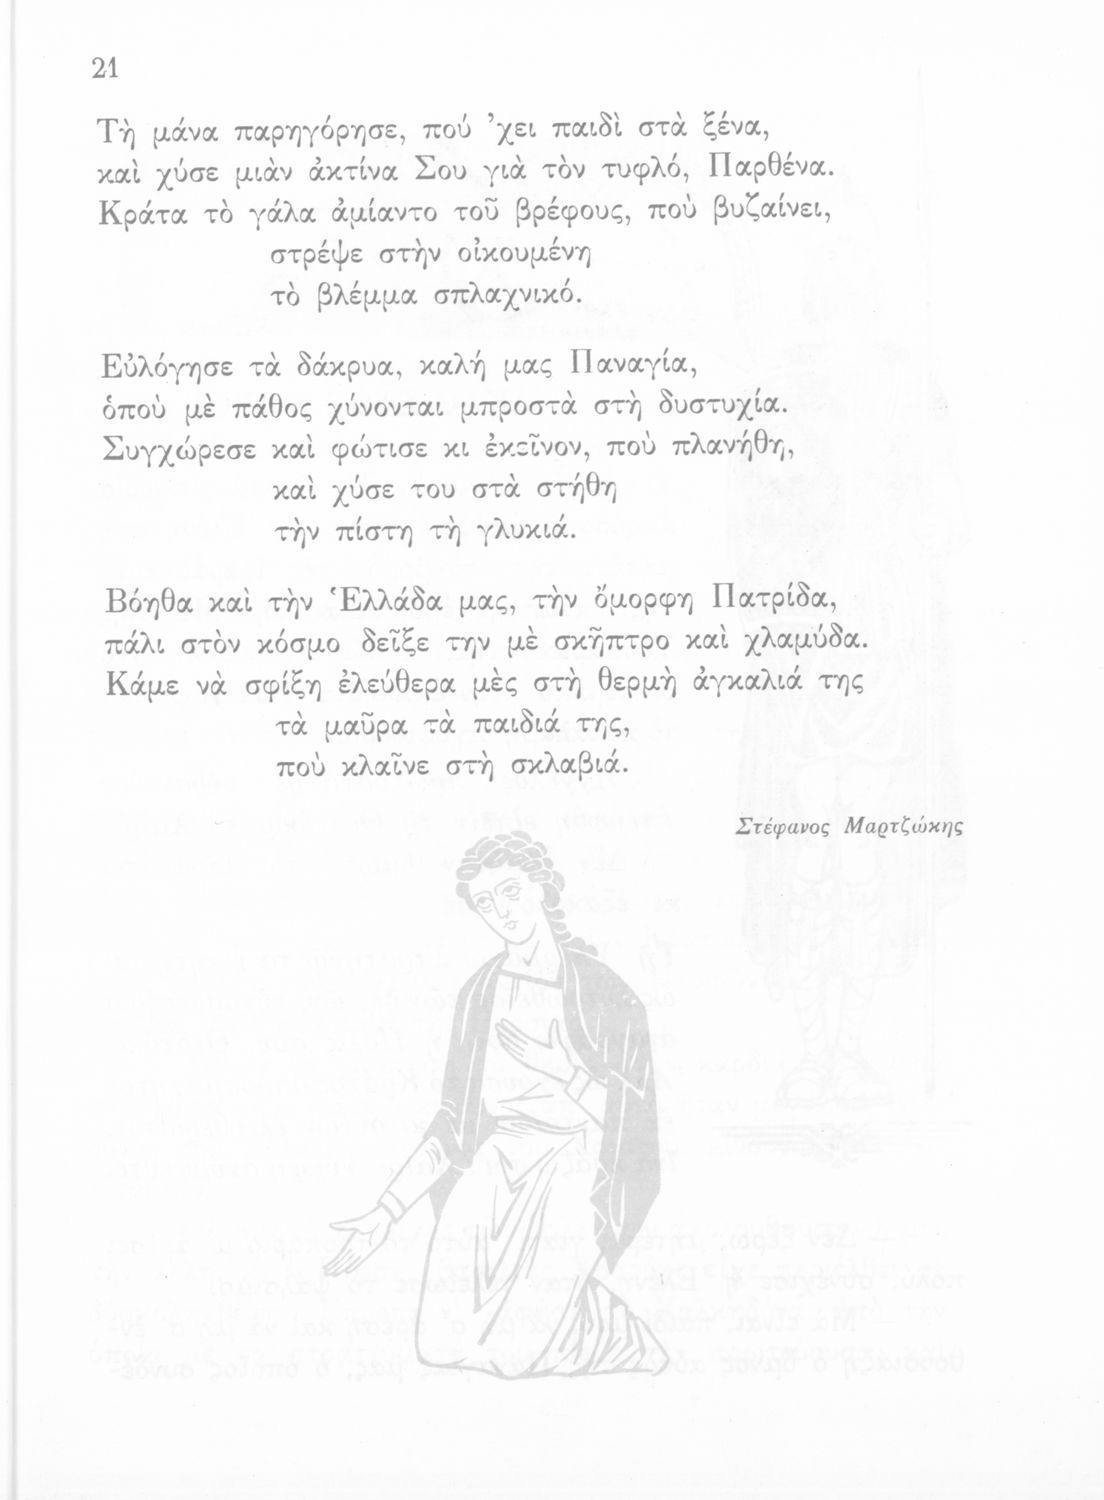 21
Τὴ μάνα παρηγόρησε, πού ’χει παιδὶ στὰ ξένα,
καὶ χύσε μιὰν ἀκτίνα Σου γιὰ τὸν τυφλό, Παρθένα.
Κράτα τὸ γάλα ἀμίαντο τοῦ βρέφους, ποὺ βυζαίνει,
στρέψε στὴν οἰκουμένη
τὸ βλέμμα σπλαχνικό.
Εὐλόγησε τὰ δάκρυα, καλή μας Παναγία,
ὁποὺ μὲ πάθος χύνονται μπροστὰ στὴ δυστυχία.
Συγχώρεσε καὶ φώτισε κι ἐκεῖνον, ποὺ πλανήθη,
καὶ χύσε του στὰ στήθη
τὴν πίστη τὴ γλυκιά.
Βόηθα καὶ τὴν Ἑλλάδα μας, τὴν ὄμορφη Πατρίδα,
πάλι στὸν κόσμο δεῖξε την μὲ σκῆπτρο καὶ χλαμύδα.
Κάμε νὰ σφίξη ἐλεύθερα μὲς στὴ θερμὴ ἀγκαλιά της
τὰ μαῦρα τὰ παιδιά της,
ποὺ κλαῖνε στὴ σκλαβιά.
Στέφανος Μαρτζώκης